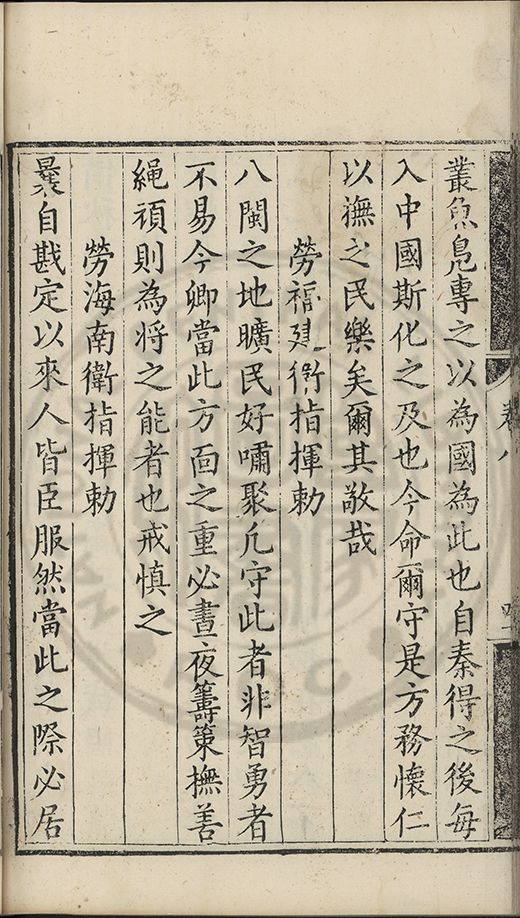 叢魚鳧專之以為國為此也自秦得之後每
入中國斯化之及也今命爾守是方務懷仁
以撫之民樂矣爾其敬哉
勞福建衛指揮勅
八閩之地曠民好嘯聚凢守此者非智勇者
不易今卿當此方面之重必晝夜籌策撫善
繩頑則為将之能者也戒慎之
勞海南衛指揮勅
曩自戡定以來人皆臣服然當此之際必居
卷八